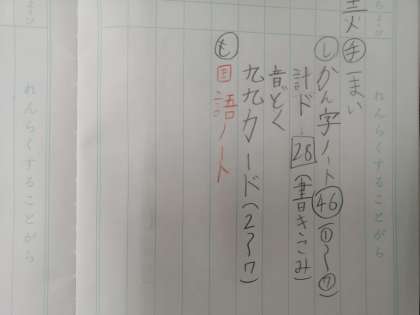 れんらくすることがら
手 一まい
し かん字ノート 46 (①〜⑦)
計ド 28 (書きこみ)
音どく
九九カード(2〜7)
も 国語ノート
れんらくすることがら